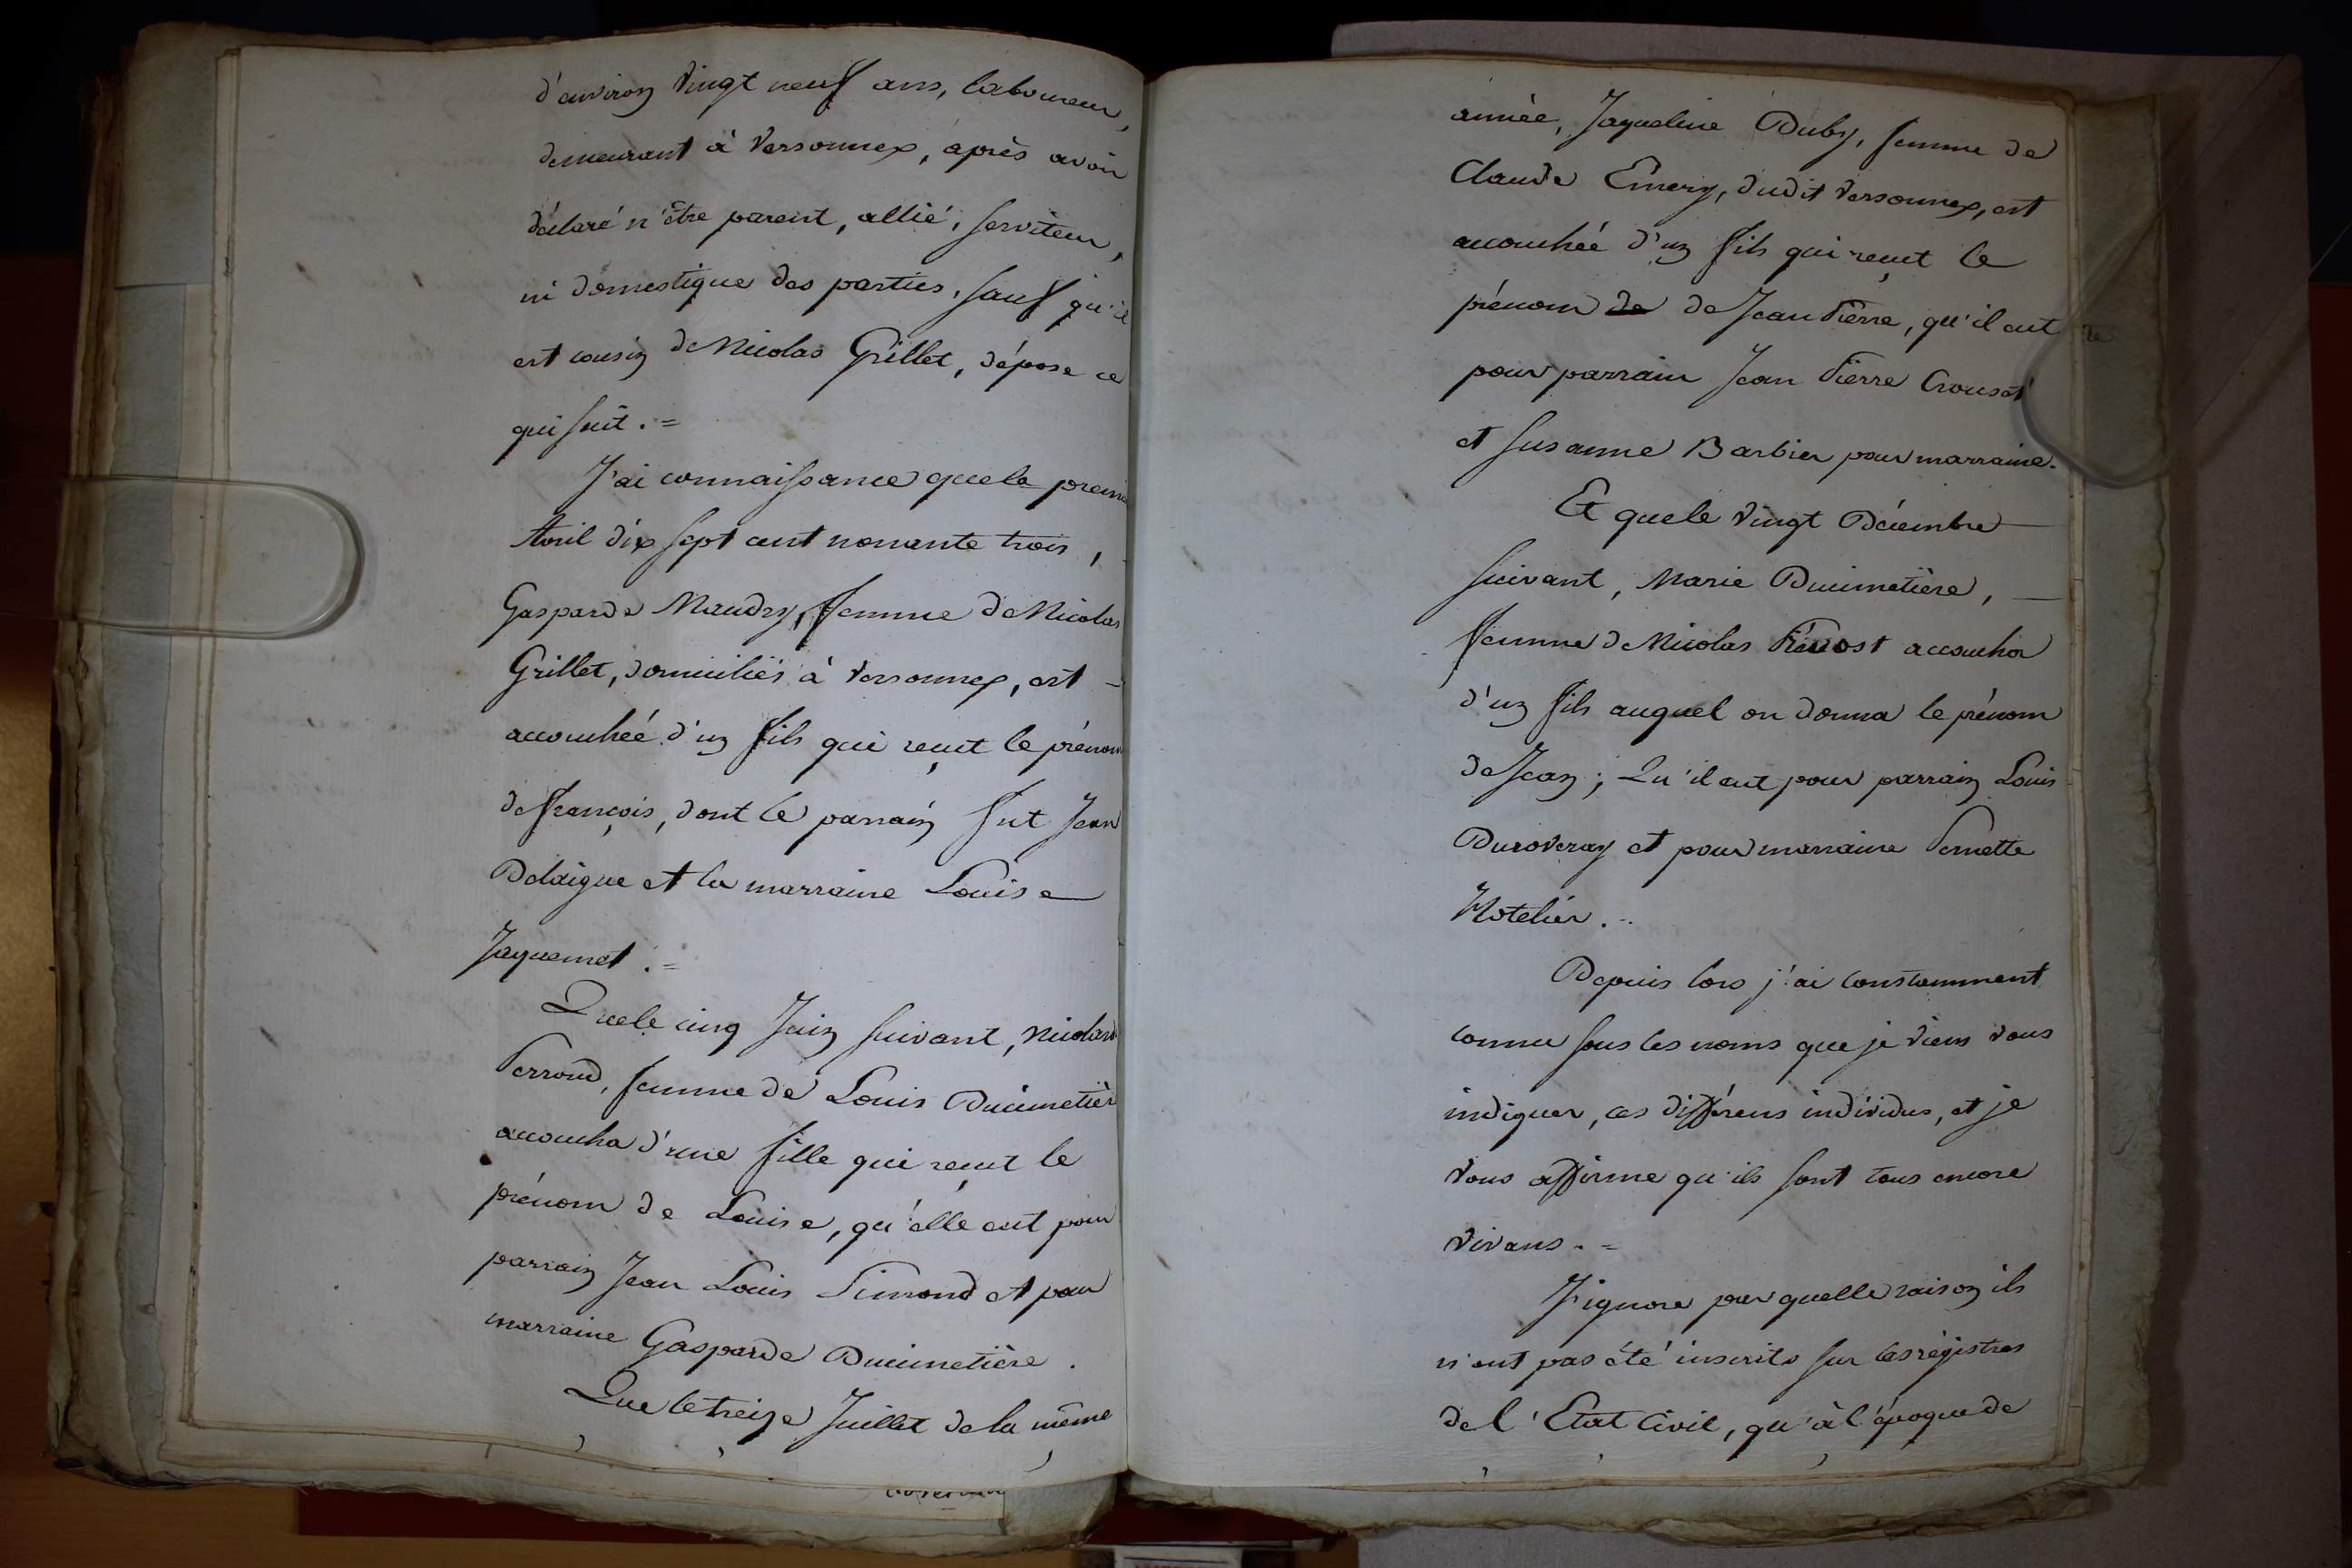 d'environ vingt neuf ans, laboureur,
demeurant à Versonnex, après avoir
déclaré n'être parent, allié, serviteur,
ni domestique des parties, sauf qu'il
est cousin de Nicolas Grillet, dépose ce
qui suit . =
J'ai connaissance que le premier
Avril dix sept cent nonante trois,
Gasparde Maudry, femme de Nicolas
Grillet, domiciliés à Versonnex, est
accouchée d'un fils qui reçut le prénom
de François, dont le parrain fut Jean
Delaigue et la marraine Louise
Jaquemet . =
Que le cinq Juin suivant, Nicolarde
Perroud, femme de Louis Ducimetière
accoucha d'une fille qui reçut le
prénom de Louise, qu'elle eut pour
parrain Jean Louis Simond et pour
marraine Gasparde Ducimetière .
Que le treize Juillet de la même
année, Jaqueline Duby, femme de
Claude Emery, dudit Versonnex, est
accouchée d'un fils qui reçut le
prénom de de Jean Pierre, qu'il eut
pour parrain Jean Pierre Crouset
et Susanne Barbier pour marraine.
Et que le vingt Décembre
suivant, Marie Ducimetière,
femme de Nicolas Prévost accoucha
d'un fils auquel on donna le prénom
de Jean ; Qu'il eut pour parrain Louis
Duroveray et pour marraine Pernette
Hotelier . =
Depuis lors j'ai constamment
connu sous les noms que je viens vous
indiquer, ces différens individus, et je
vous affirme qu'ils sont tous encore
vivans . =
J'ignore par quelle raison ils
n'ont pas été inscrits sur les régistres
de l'Etat Civil, qu'à l'époque de